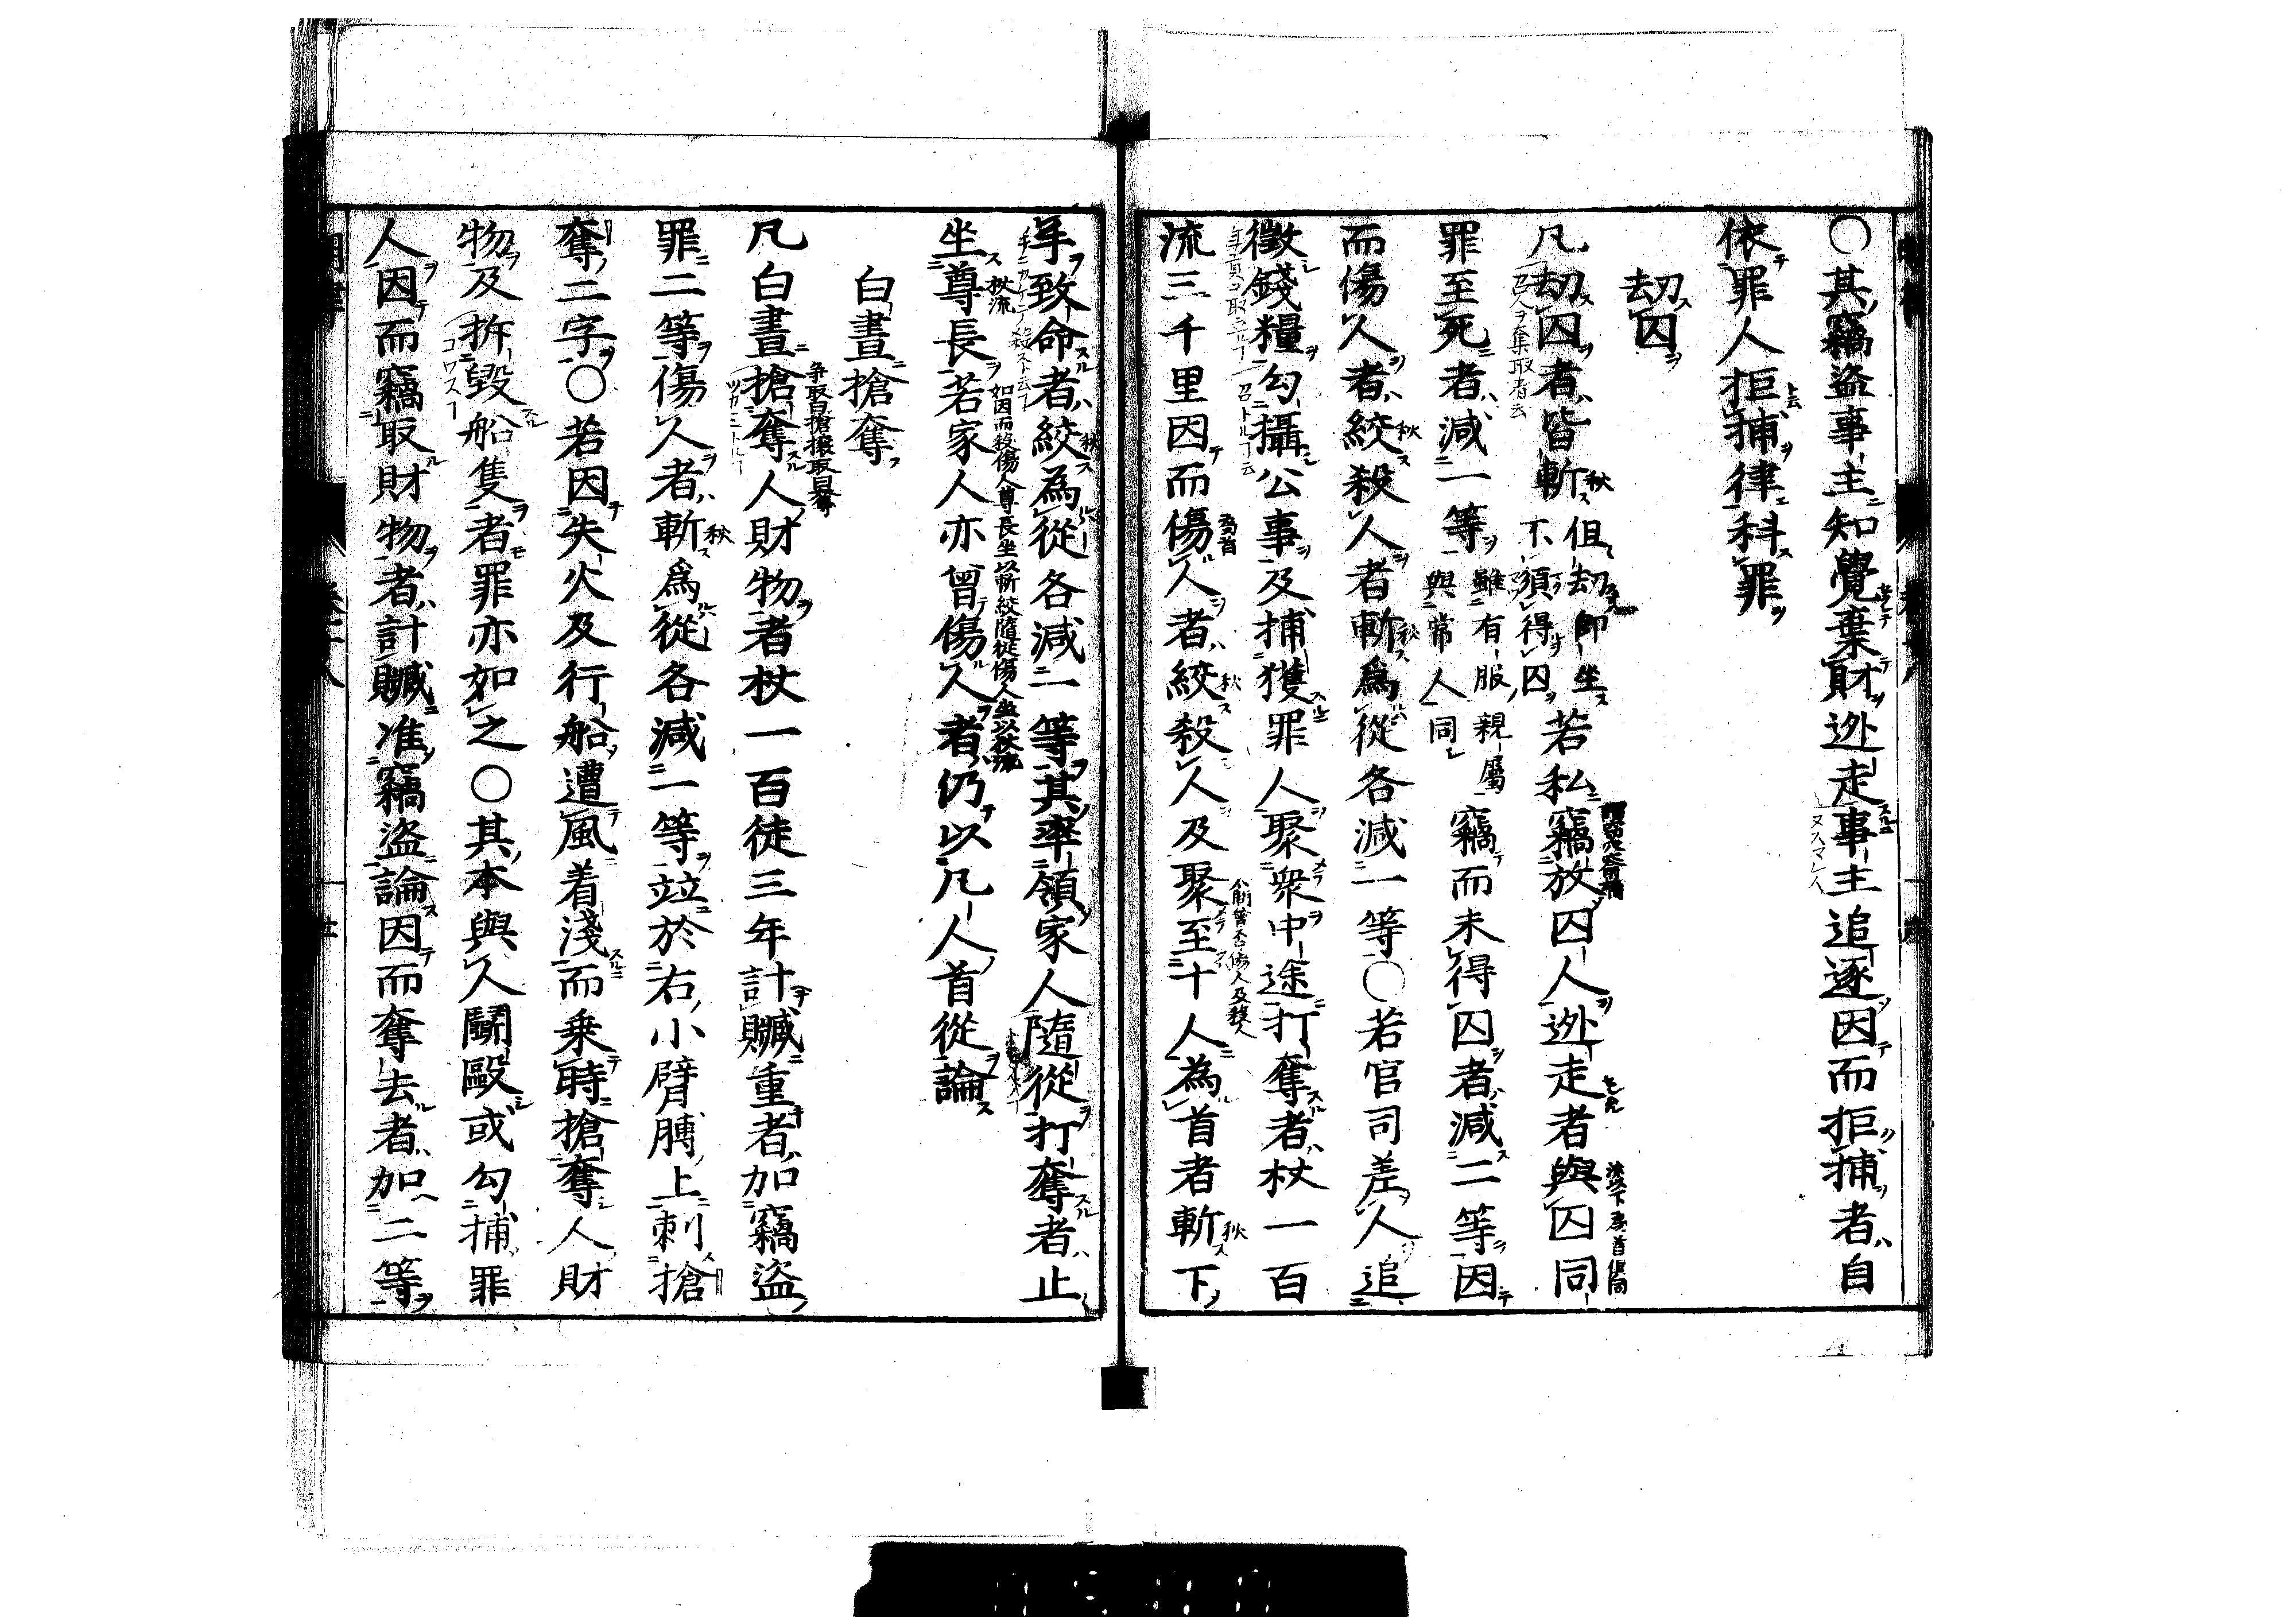 ○其竊盗事主知覺棄財逃走事主追逐因而拒捕者自
依罪人拒捕律科罪
劫囚
凡劫囚者皆斬但劫即坐不須得囚若私竊放囚人逃走者與囚同
罪至死者減一等雖有服親屬與常人同竊而未得囚者減二等因
而傷人者絞殺人者斬爲從各減一等○若官司差人追
徵錢糧勾攝公事及捕獲罪人聚衆中途打奪者杖一百
流三千里因而傷人者絞殺人及聚至十人為首者斬下
手致命者絞為從各減一等其率領家人隨從打奪者止
坐尊長若家人亦曾傷人者仍以凡人首從論
如因而殺傷人尊長坐以斬絞隨從傷人坐以杖流
白晝搶奪
凡白晝搶奪人財物者杖一百徒三年計贓重者加竊盗
爭取曰搶攘取曰奪
罪二等傷人者斬爲從各減一等竝於右小臂膊上刺搶
奪二字○若因失火及行船遭風着淺而乗時搶奪人財
物及拆毀船隻者罪亦如之○其本與人鬪毆或勾捕罪
人因而竊取財物者計贓准竊盗論因而奪去者加二等